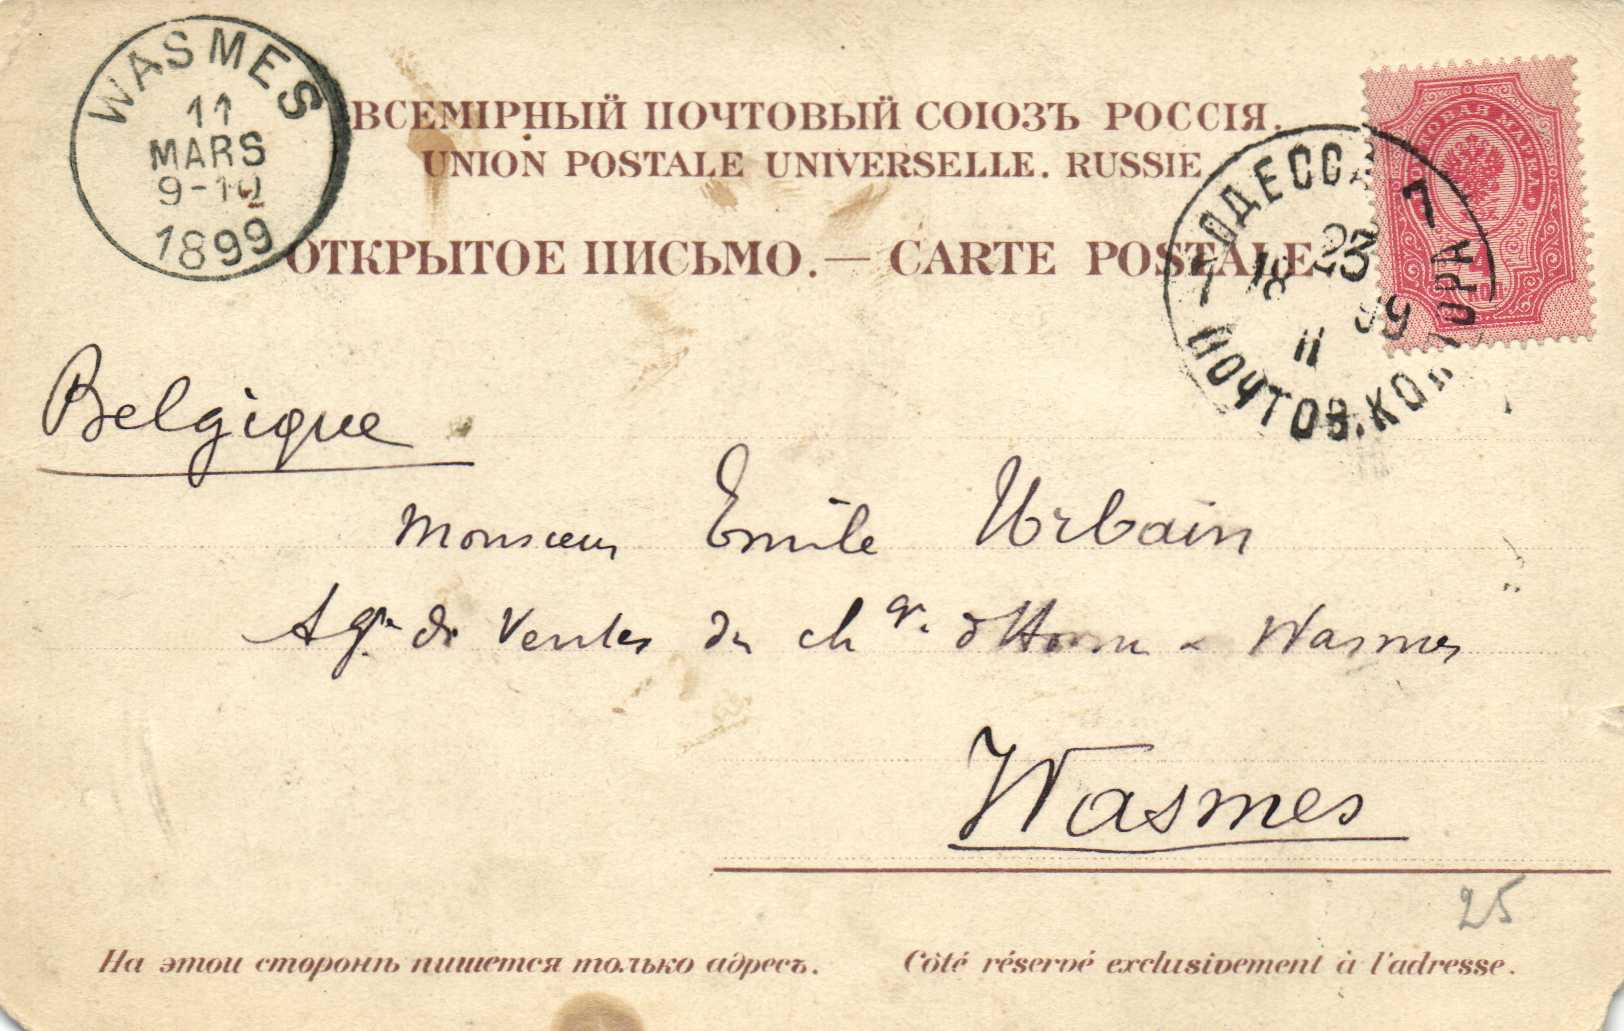 WASMES
11
MARS
9-10
1899
ВСЕМІРНЫЙ ПОЧТОВЫЙ СОЮЗЪ РОССІЯ.
UNION POSTALE UNIVERSELLE. RUSSIE
ОТКРЫТОЕ ПИСЬМО. — CARTE POSTALE
ПОЧТОВАЯ МАРКА
4
КОП.
7 ОДЕССА 7
23
18 99
II
ПОЧТОВ. КОНТОРА
Belgique
Monsieur Emile Urbain
Agt de Ventes du ch d'Hornu & Wasmes
Wasmes
25
На этои сторонѣ пишется только адресъ.
Côté réservé exclusivement à l'adresse.